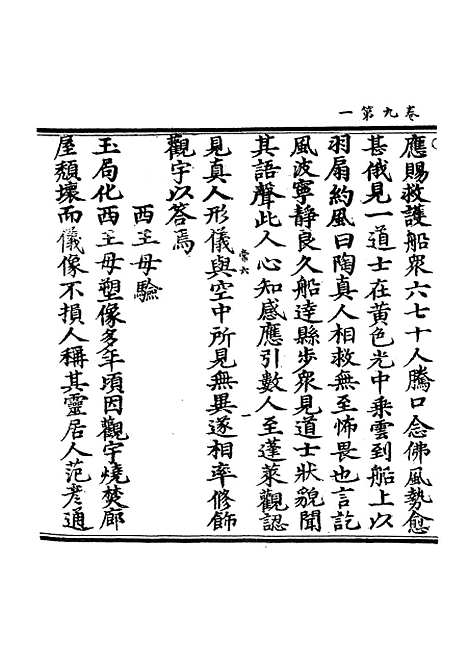 卷九第一
應賜救護船眾六七十人騰口念佛風勢愈
甚俄見一道士在黃色光中乘雲到船上以
羽扇約風曰陶真人相救無至怖畏也言訖
風波寧静良久船達縣步眾見道士狀貌聞
其語聲此人心知感應引數人至蓬萊觀認
常六
一
見真人形儀與空中所見無異遂相率修飾
觀宇以答焉
西王母驗
玉局化西王母塑像多年頃因觀宇燒焚廊
屋頹壞而儀像不損人稱其靈居人范彥通